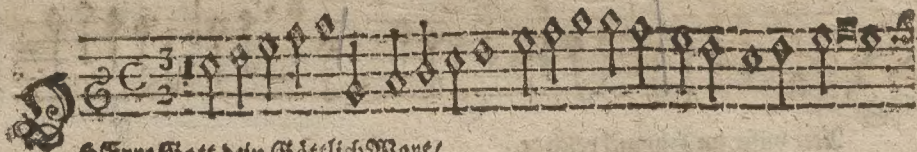 3
2
O HErre Gott dein Göttlich Wort/